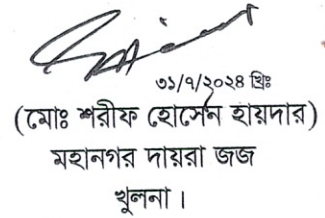 ৩১/৭/২০২৪ খ্রিঃ
(মোঃ শরীফ হোসেন হায়দার)
মহানগর দায়রা জজ
খুলনা।